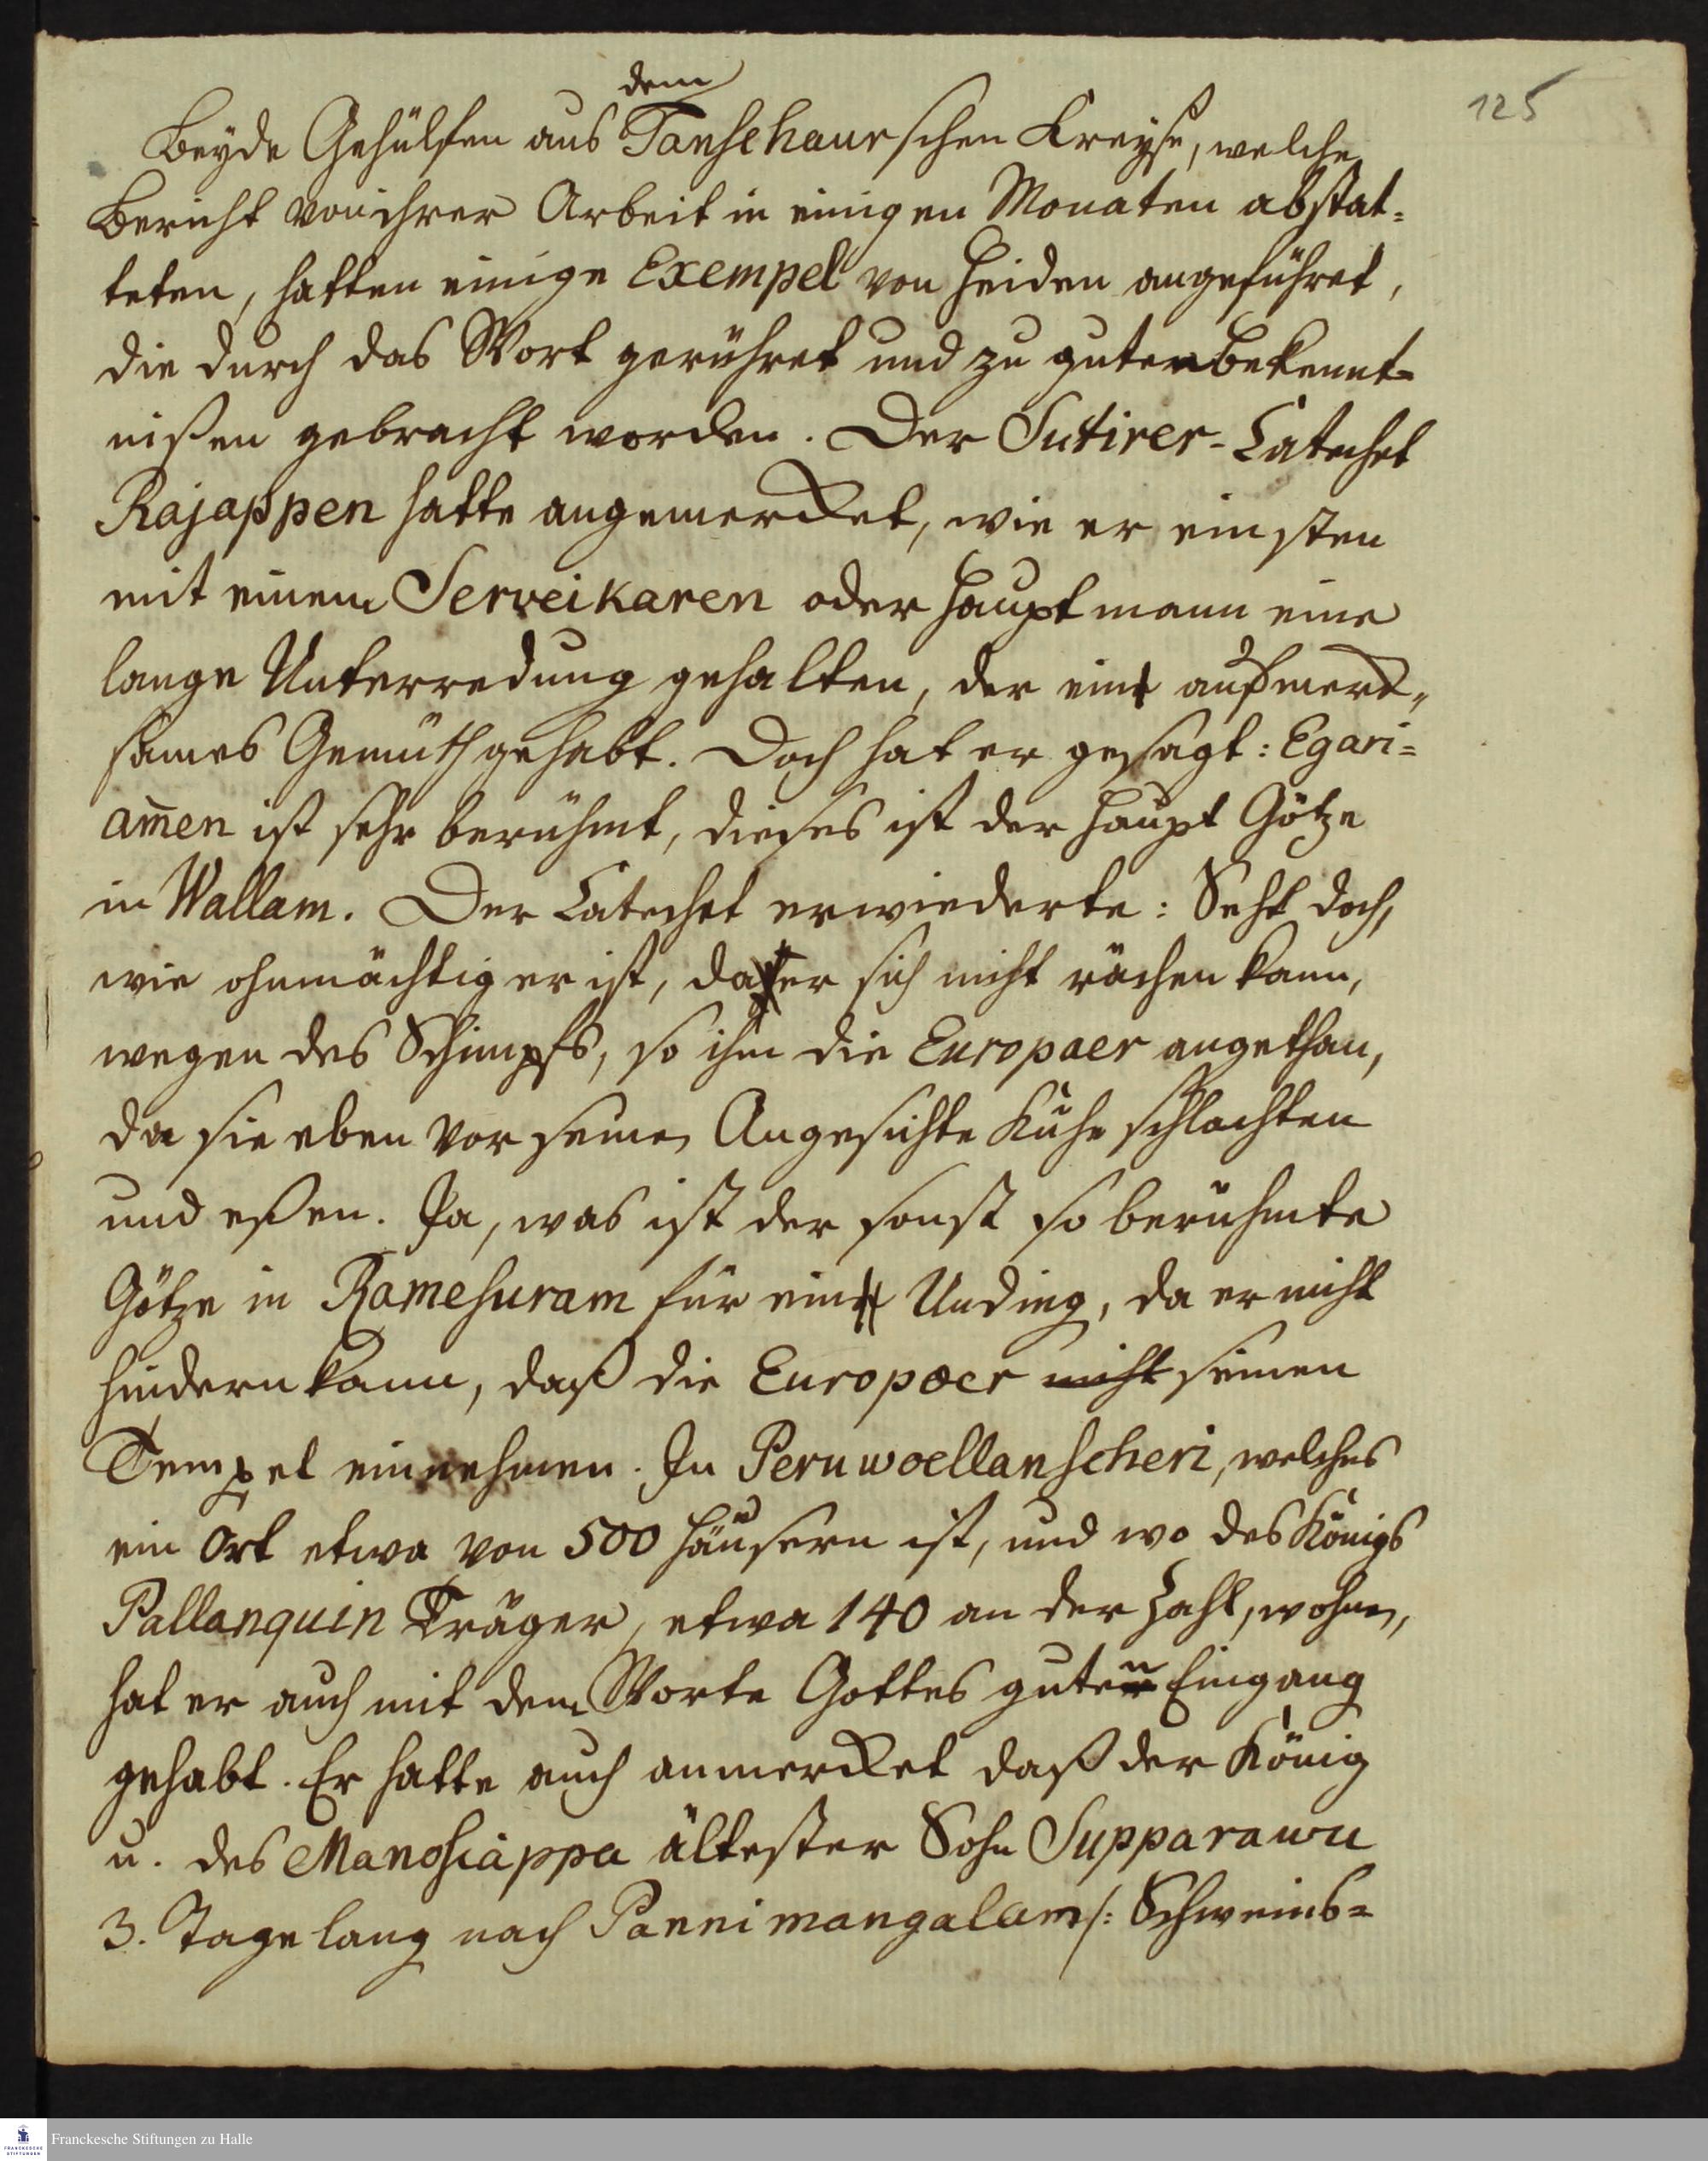 125
dem
Beyde Gehülfen aus Tanschaurschen Kreyse, welche
Bericht von ihrer Arbeit in einigen Monaten abstat=
teten, hatten einige Exempel von Heiden angeführet,
die durch das Wort gerühret und zu guten Bekennt=
nißen gebracht worden. Der Sutirer-Catechet
Rajappen hatte angemercket, wie er einsten
mit einem Serveikaren oder Hauptmann eine
lange Unterredung gehalten, der ein aufmerck=
sames Gemüth gehabt. Doch hat er gesagt: Egari=
am̃en ist sehr berühmt, dieses ist der Haupt Götze
in Wallam. Der Catechet erwiederte: Seht doch,
wie ohnmächtig er ist, da er sich nicht rächen kann,
wegen des Schimpfs, so ihm die Europaer angethan,
da sie eben vor seinen Angesichte Kühe schlachten
und eßen. Ja, was ist der sonst so berühmte
Götze in Ramesuram für ein Unding, da er nicht
hindern kann, daß die Europaer nicht seinen
Tempel einnehmen. In Peruwoellanscheri, welches
ein Ort etwa von 500 Häusern ist, und wo des Königs
Pallanquin Träger, etwa 140 an der Zahl, wohnen,
hat er auch mit dem Worte Gottes guten Eingang
gehabt. Er hatte auch anmercket daß der König
u. des Manosiappa ältester Sohn Supparawu
3. Tage lang nach Pannimangalam /: Schweins=
Franckesche Stiftungen zu Halle